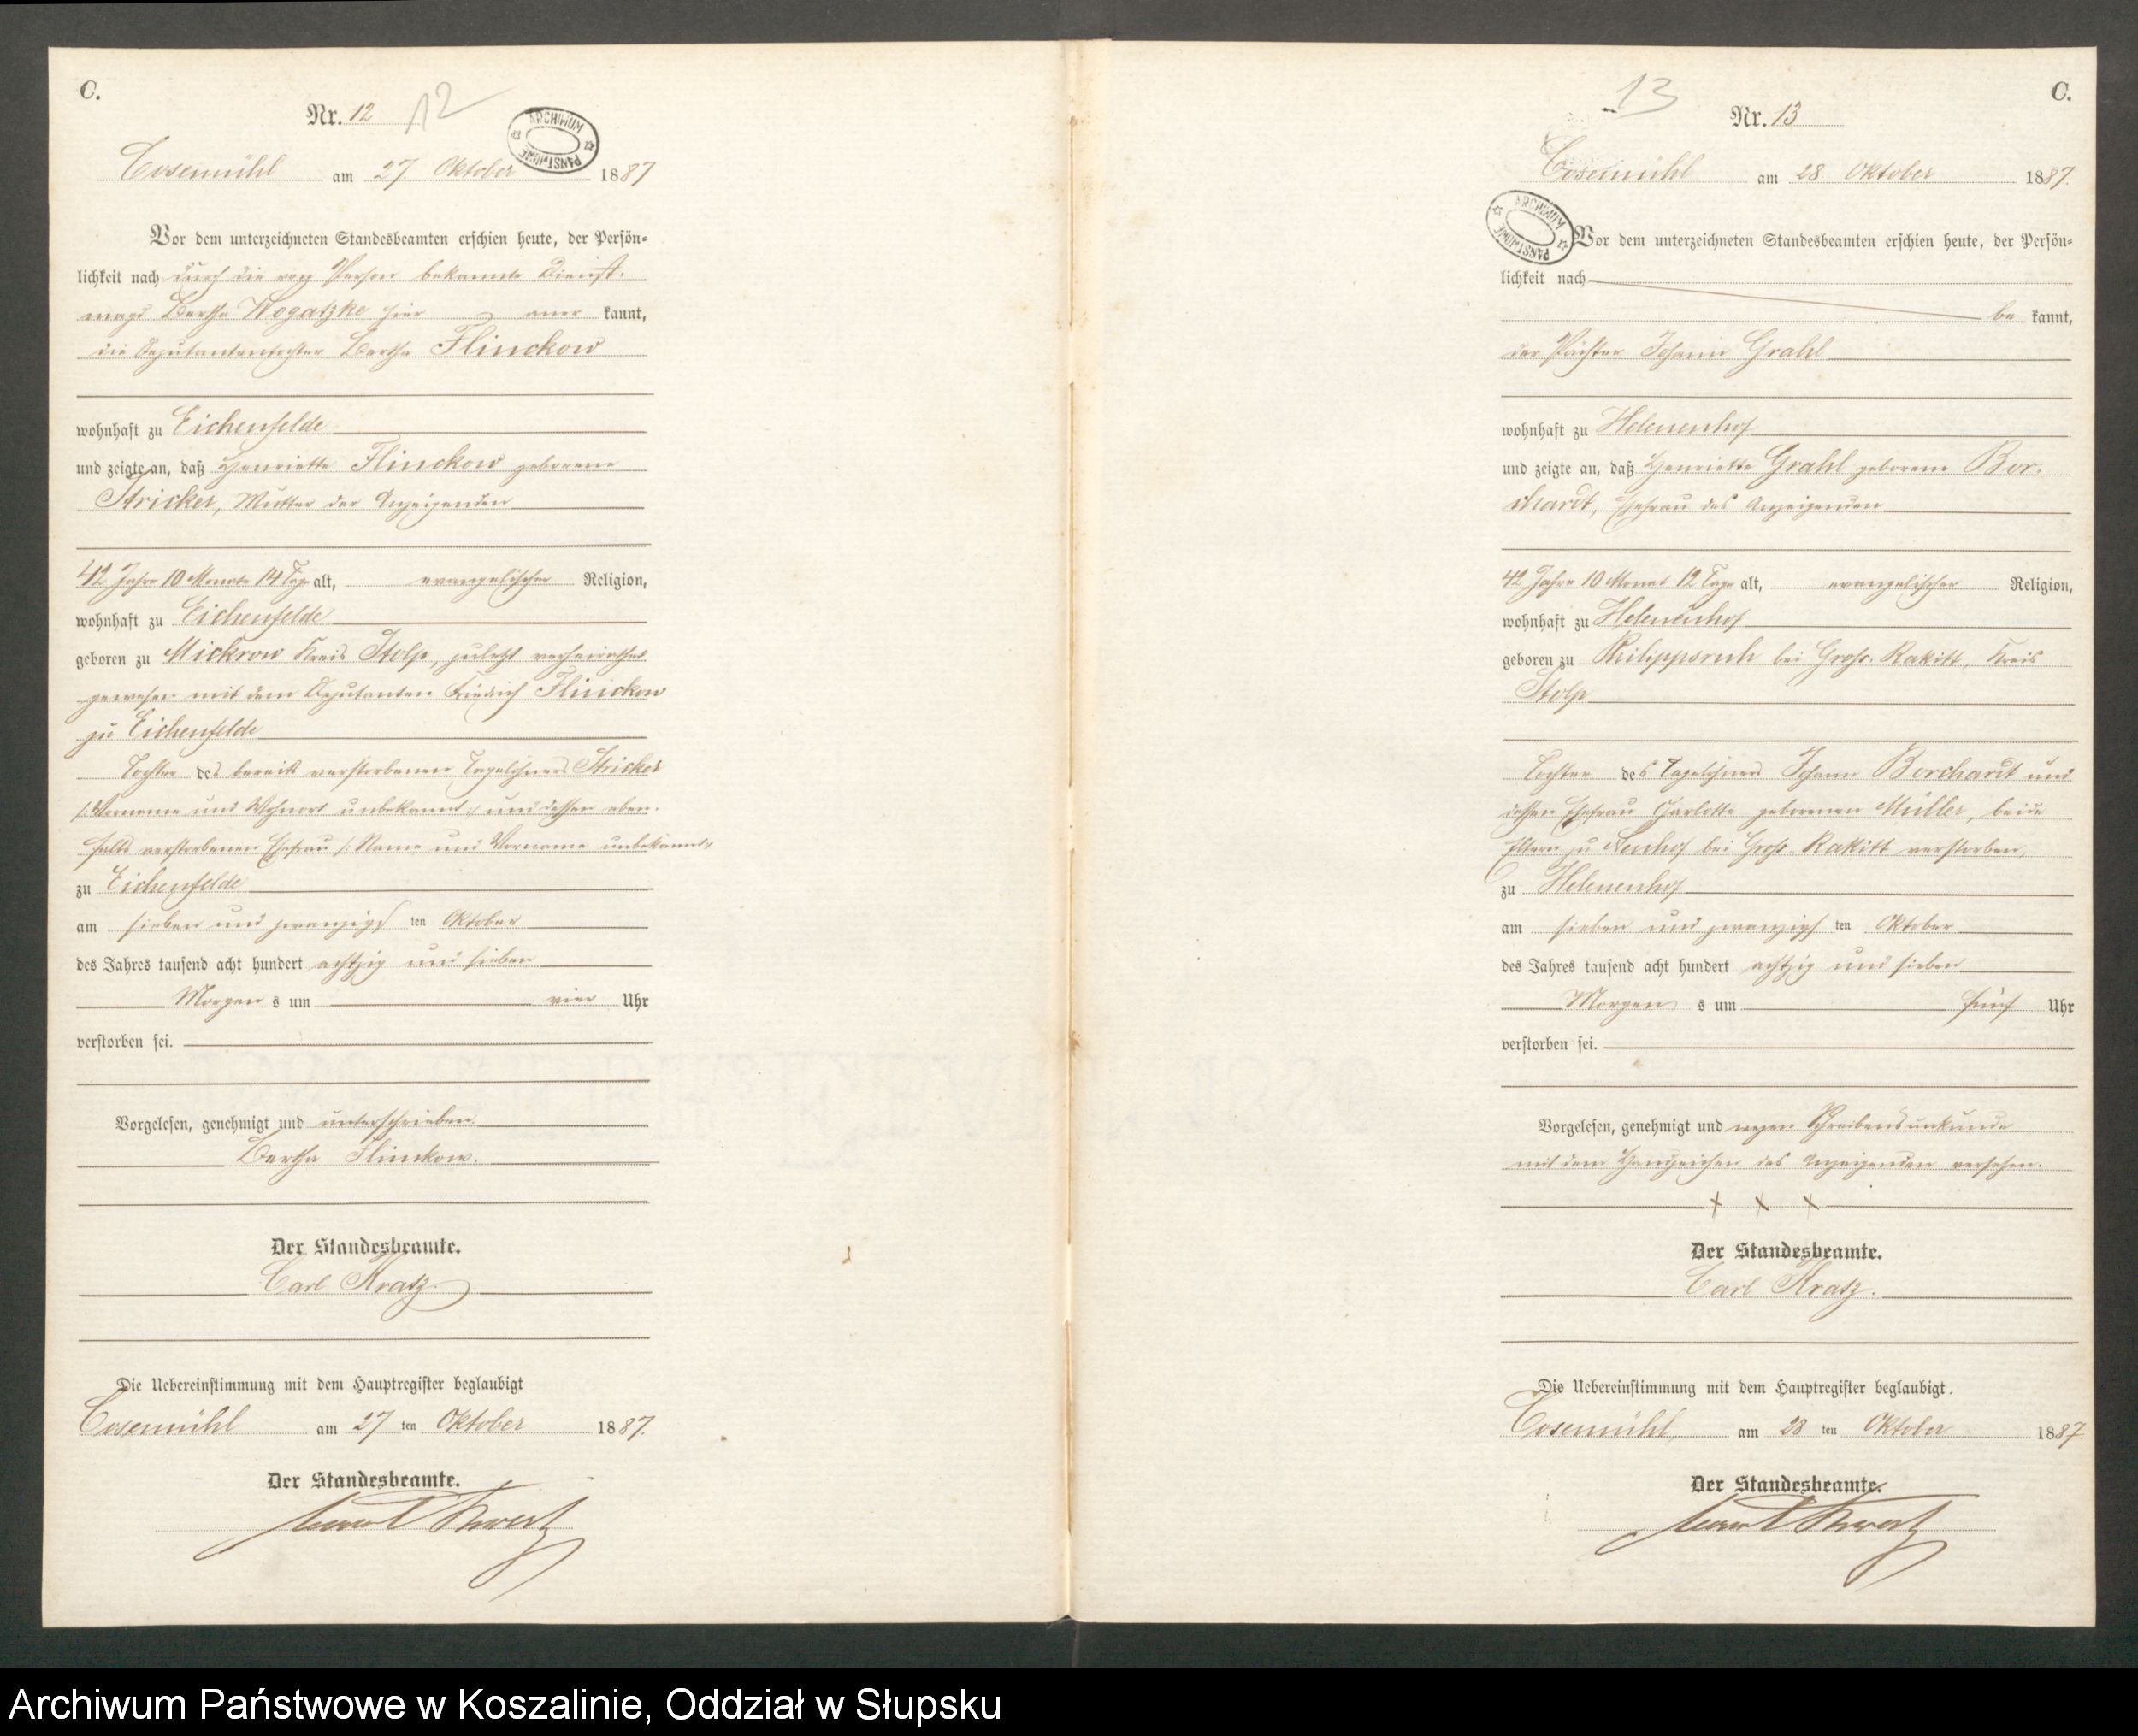 C.
Nr. 12
12
ARCHIWUM PAŃSTWOWE
Cosemühl am 27 Oktober 1887
Vor dem unterzeichneten Standesbeamten erschien heute, der Persön-
lichkeit nach durch die von Person bekannte Dienst-
magd Bertha Wogatzke hier aner kannt,
die Deputantentochter Bertha Flinckow
wohnhaft zu Eichenfelde
und zeigte an, daß Henriette Flinckow geborene
Stricker, Mutter der Anzeigenden
42 Jahre 10 Monate 14 Tage alt, evangelischer Religion,
wohnhaft zu Eichenfelde
geboren zu Mickrow Kreis Stolp, zuletzt verheirathet
gewesen mit dem Deputanten Friedrich Flinckow
zu Eichenfelde
Tochter des bereits verstorbenen Tagelöhners Stricker
/:Vorname und Wohnort unbekannt:/ und dessen eben-
falls verstorbenen Ehefrau /:Name und Vorname unbekannt:/
zu Eichenfelde
am sieben und zwanzigs ten Oktober
des Jahres tausend acht hundert achtzig und sieben
Morgen s um vier Uhr
verstorben sei.
Vorgelesen, genehmigt und unterschrieben.
Bertha Flinckow.
Der Standesbeamte.
Carl Kratz
Die Uebereinstimmung mit dem Hauptregister beglaubigt
Cosemühl am 27 ten Oktober 1887.
Der Standesbeamte.
Carl Kratz
C.
13
Nr. 13
Cosemühl am 28 Oktober 1887.
ARCHIWUM PAŃSTWOWE
Vor dem unterzeichneten Standesbeamten erschien heute, der Persön-
lichkeit nach
be kannt,
der Pächter Johann Grahl
wohnhaft zu Helenenhof
und zeigte an, daß Henriette Grahl geborene Bor-
chardt, Ehefrau des Anzeigenden
42 Jahre 10 Monat 12 Tage alt, evangelischer Religion,
wohnhaft zu Helenenhof
geboren zu Philippsruh bei Gross-Rakitt, Kreis
Stolp
Tochter des Tagelöhners Johann Borchardt und
dessen Ehefrau Charlotte geborenen Müller, beide
Eltern zu Neuhof bei Gross-Rakitt verstorben,
zu Helenenhof
am sieben und zwanzigs ten Oktober
des Jahres tausend acht hundert achtzig und sieben
Morgen s um fünf Uhr
verstorben sei.
Vorgelesen, genehmigt und wegen Schreibensunkunde
mit dem Handzeichen des Anzeigenden versehen.
x x x
Der Standesbeamte.
Carl Kratz.
Die Uebereinstimmung mit dem Hauptregister beglaubigt.
Cosemühl, am 28 ten Oktober 1887.
Der Standesbeamte.
Carl Kratz
Archiwum Państwowe w Koszalinie, Oddział w Słupsku